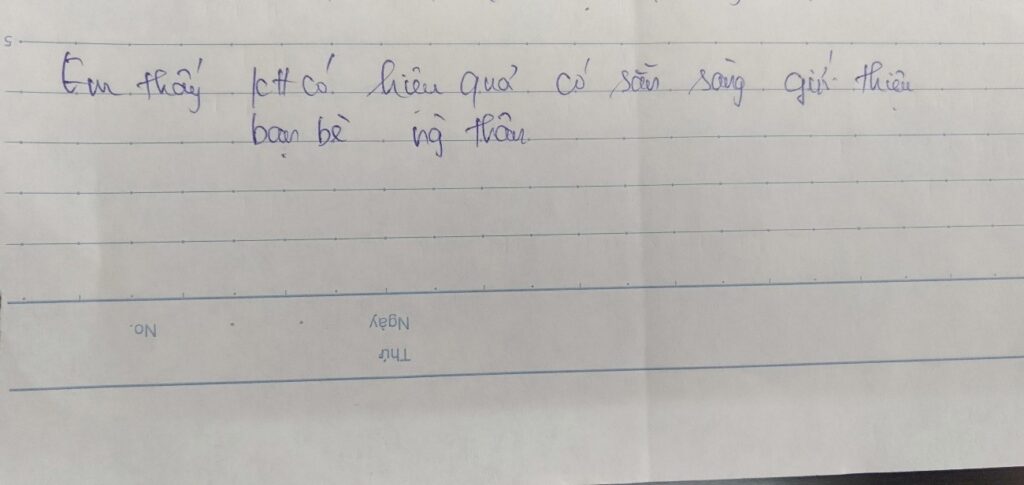 Em thấy KH có hiệu quả có sẵn sàng giới thiệu
bạn bè ng thân
No.
Ngày
Thứ
5